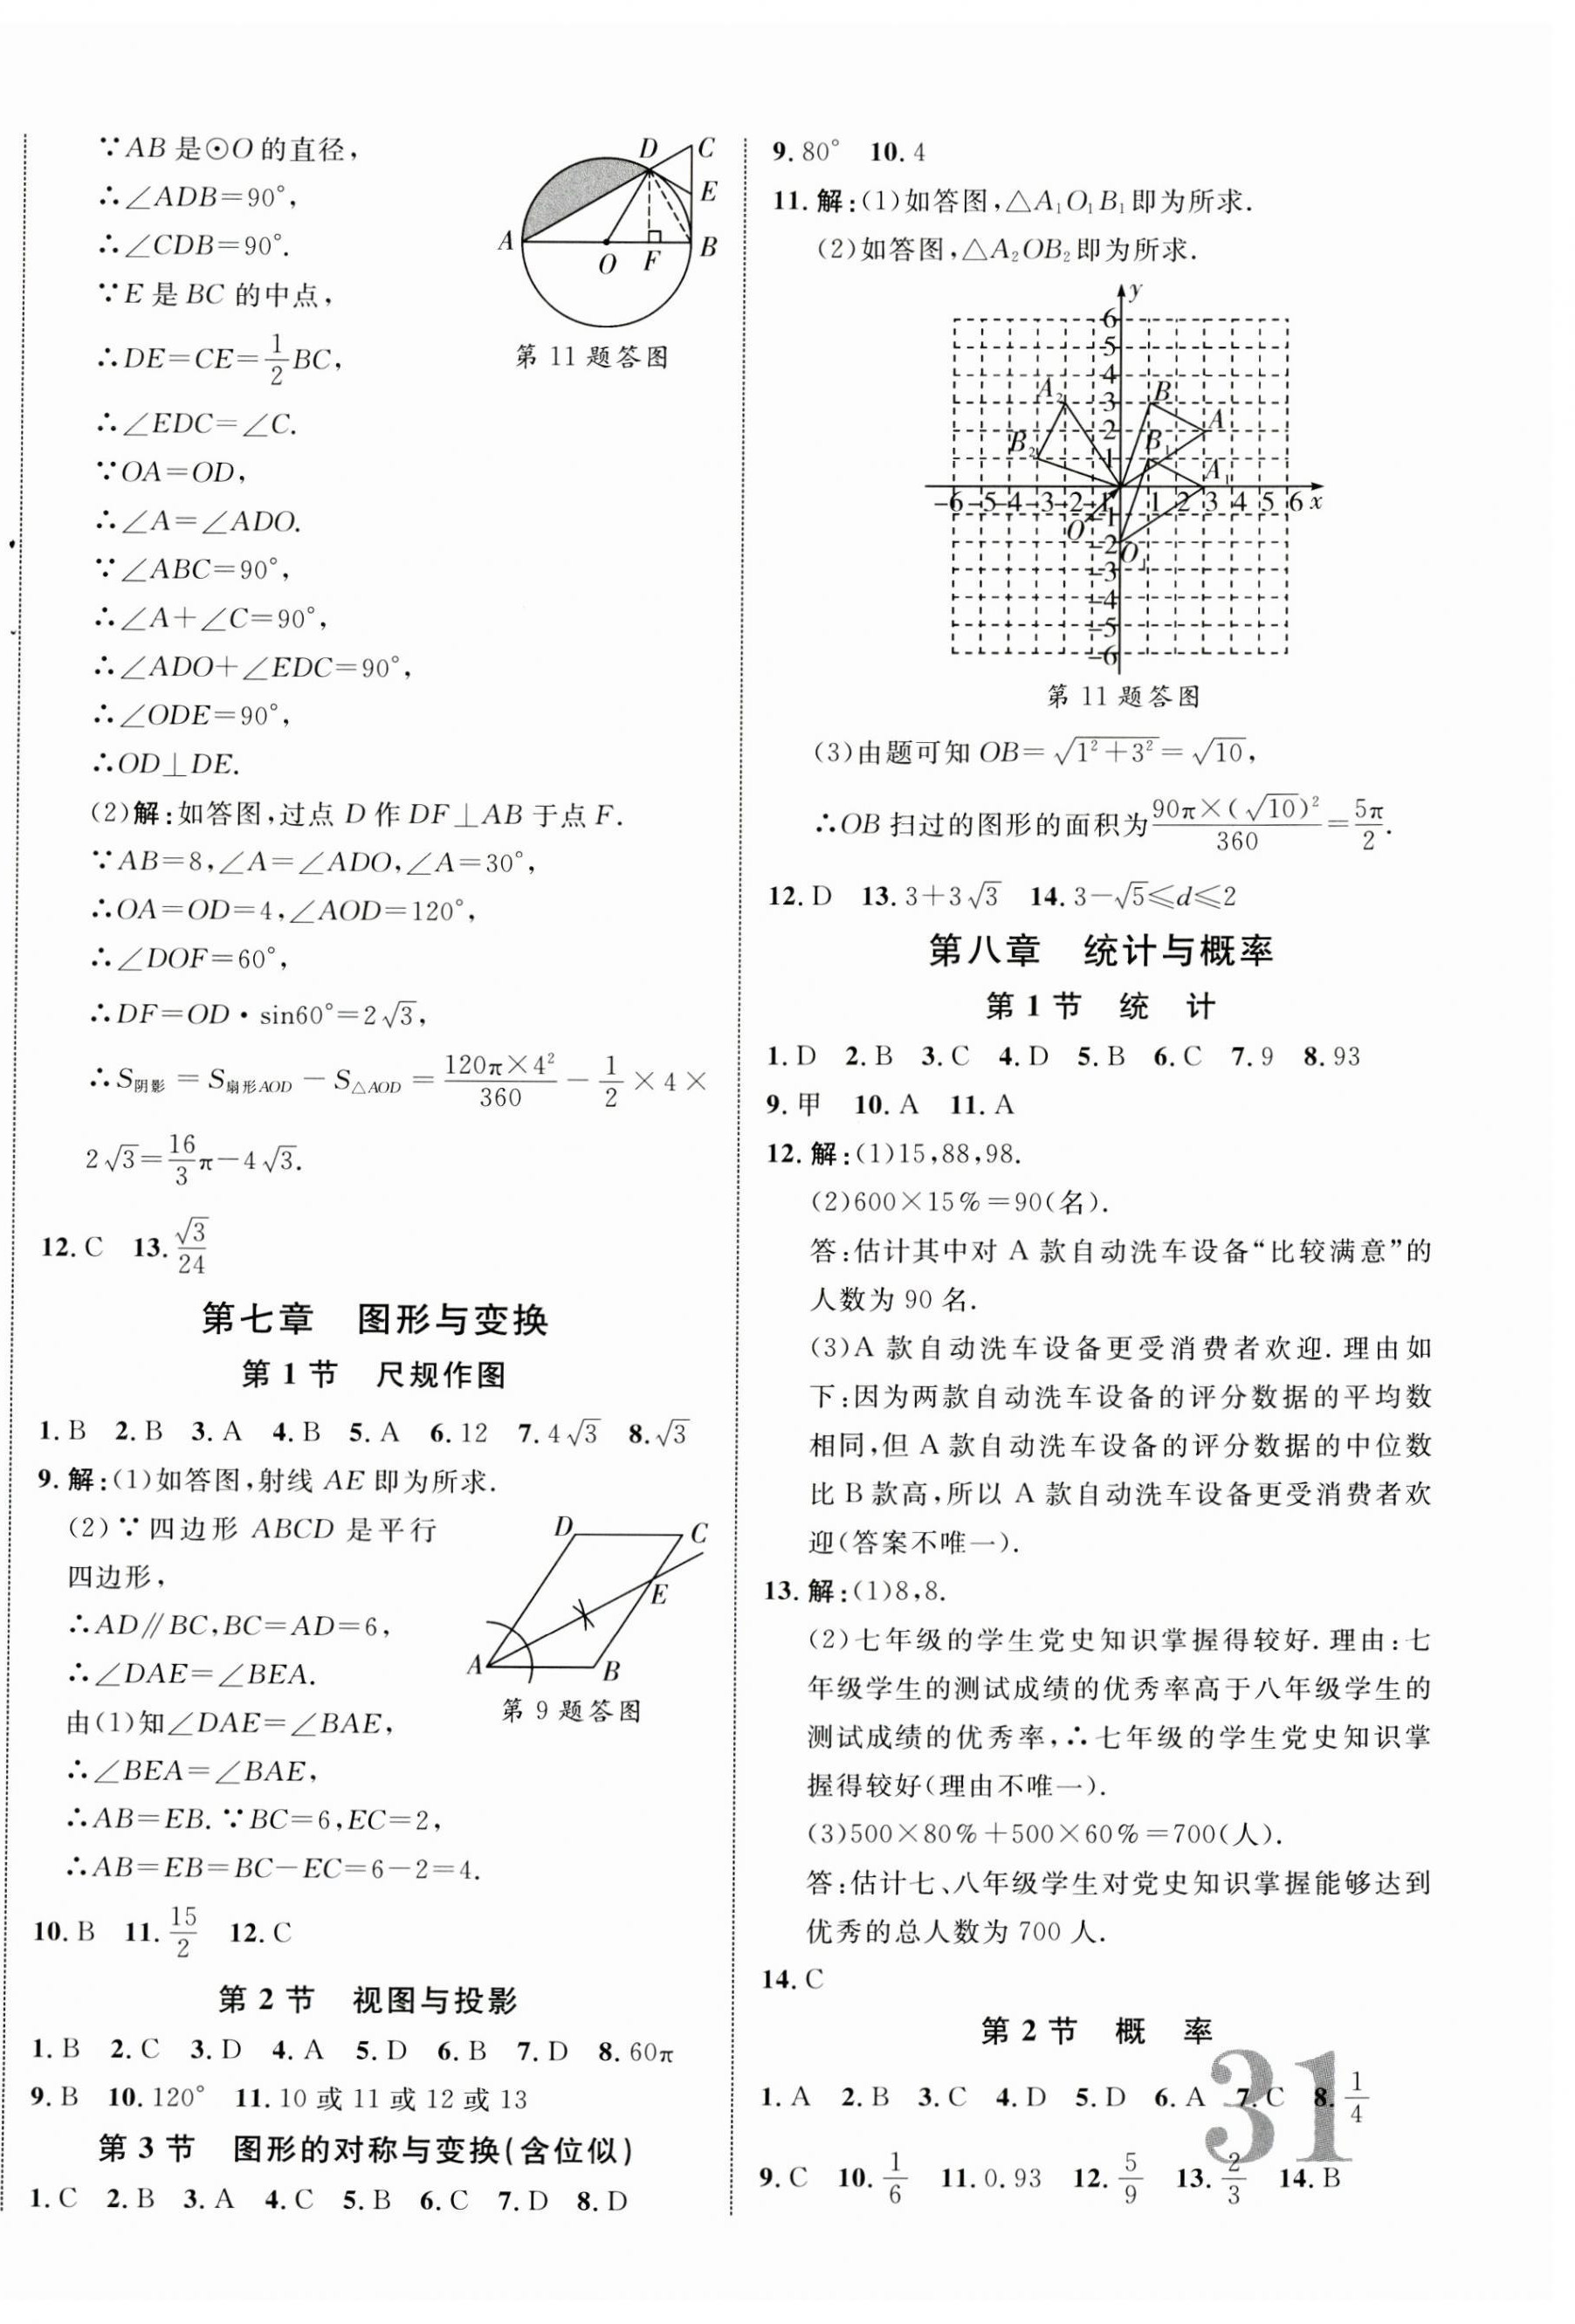 ∵AB是⊙O的直径,
∴∠ADB=90°,
∴∠CDB=90°.
∵E是BC的中点,
∴DE=CE=\frac{1}{2}BC,
∴∠EDC=∠C.
∵OA=OD,
∴∠A=∠ADO.
∵∠ABC=90°,
∴∠A+∠C=90°,
∴∠ADO+∠EDC=90°,
∴∠ODE=90°,
∴OD⊥DE.
D C E A O F B
第11题答图
(2)解:如答图,过点D作DF⊥AB于点F.
∵AB=8,∠A=∠ADO,∠A=30°,
∴OA=OD=4,∠AOD=120°,
∴∠DOF=60°,
∴DF=OD·sin60°=2√3,
∴S阴影=S扇形AOD-S△AOD=\frac{120π×4²}{360}-\frac{1}{2}×4×
2√3=\frac{16}{3}π-4√3.
12.C 13.\frac{√3}{24}
第七章 图形与变换
第1节 尺规作图
1.B 2.B 3.A 4.B 5.A 6.12 7.4√3 8.√3
9.解:(1)如答图,射线AE即为所求.
(2)∵四边形ABCD是平行
四边形,
∴AD∥BC,BC=AD=6,
∴∠DAE=∠BEA.
由(1)知∠DAE=∠BAE,
∴∠BEA=∠BAE,
∴AB=EB.∵BC=6,EC=2,
∴AB=EB=BC-EC=6-2=4.
D C E A B
第9题答图
10.B 11.\frac{15}{2} 12.C
第2节 视图与投影
1.B 2.C 3.D 4.A 5.D 6.B 7.D 8.60π
9.B 10.120° 11.10或11或12或13
第3节 图形的对称与变换(含位似)
1.C 2.B 3.A 4.C 5.B 6.C 7.D 8.D
9.80° 10.4
11.解:(1)如答图,△A₁O₁B₁即为所求.
(2)如答图,△A₂OB₂即为所求.
y
6
5
4
A₂ 3 B
2 A
B₂ 1 B₁ A₁
-6 -5 -4 -3 -2 -1 1 2 3 4 5 6 x
O -1
-2 O₁
-3
-4
-5
-6
第11题答图
(3)由题可知OB=√(1²+3²)=√10,
∴OB扫过的图形的面积为\frac{90π×(√10)²}{360}=\frac{5π}{2}.
12.D 13.3+3√3 14.3-√5≤d≤2
第八章 统计与概率
第1节 统 计
1.D 2.B 3.C 4.D 5.B 6.C 7.9 8.93
9.甲 10.A 11.A
12.解:(1)15,88,98.
(2)600×15%=90(名).
答:估计其中对A款自动洗车设备“比较满意”的
人数为90名.
(3)A款自动洗车设备更受消费者欢迎.理由如
下:因为两款自动洗车设备的评分数据的平均数
相同,但A款自动洗车设备的评分数据的中位数
比B款高,所以A款自动洗车设备更受消费者欢
迎(答案不唯一).
13.解:(1)8,8.
(2)七年级的学生党史知识掌握得较好.理由:七
年级学生的测试成绩的优秀率高于八年级学生的
测试成绩的优秀率,∴七年级的学生党史知识掌
握得较好(理由不唯一).
(3)500×80%+500×60%=700(人).
答:估计七、八年级学生对党史知识掌握能够达到
优秀的总人数为700人.
14.C
第2节 概 率
1.A 2.B 3.C 4.D 5.D 6.A 7.C 8.\frac{1}{4}
9.C 10.\frac{1}{6} 11.0.93 12.\frac{5}{9} 13.\frac{2}{3} 14.B
31